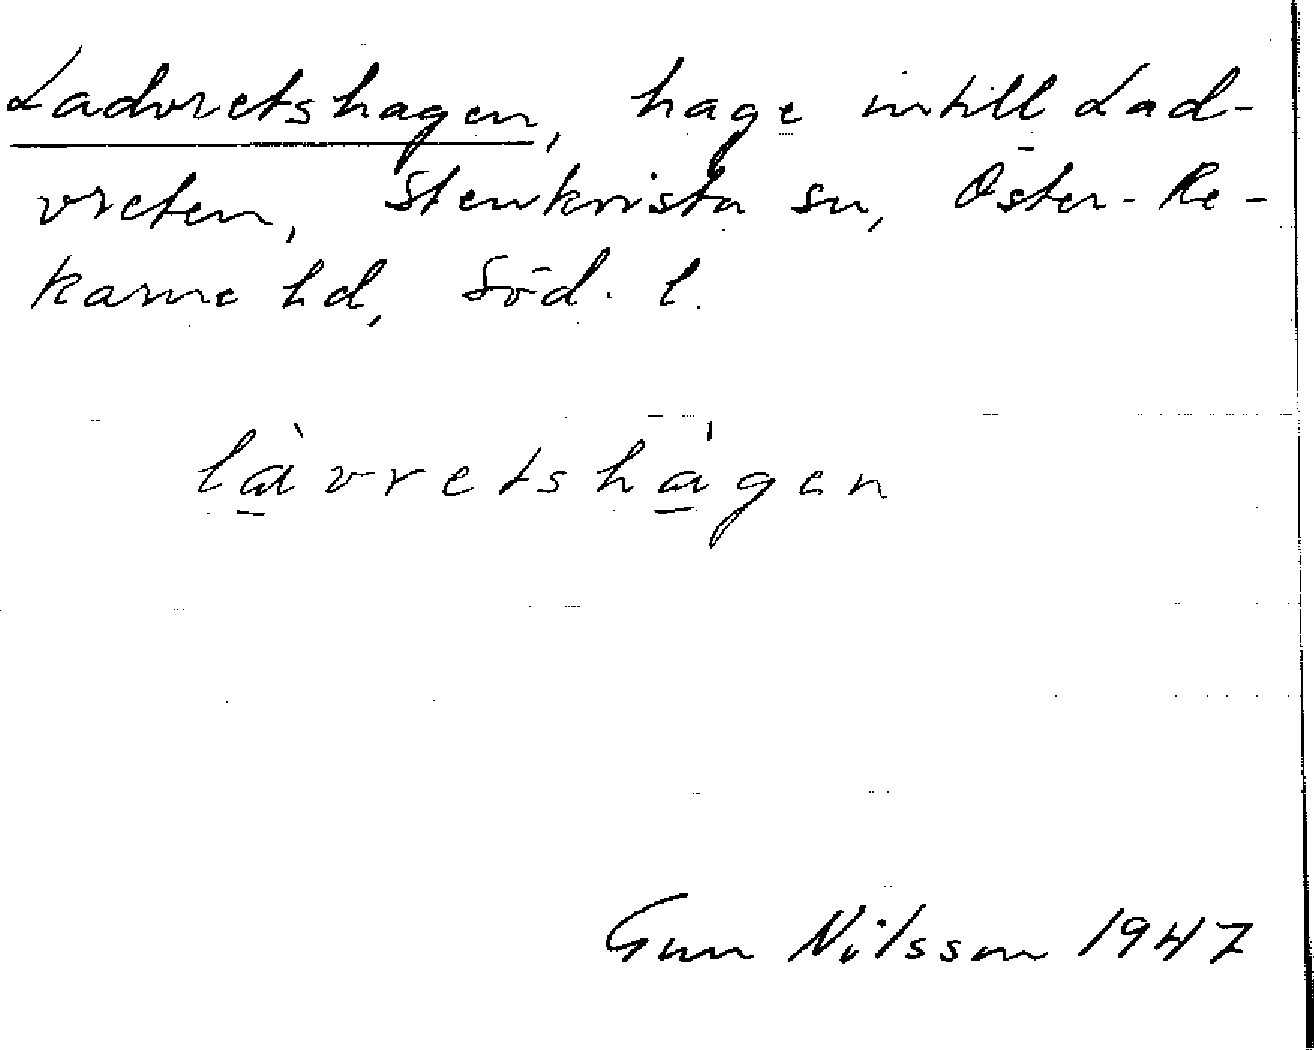 Ladvretshagen, hage intill Lad-
vreten, Stenkvista sn, Öster-Re-
karne hd, Söd. l.
làvretshágen
Gun Nilsson 1947